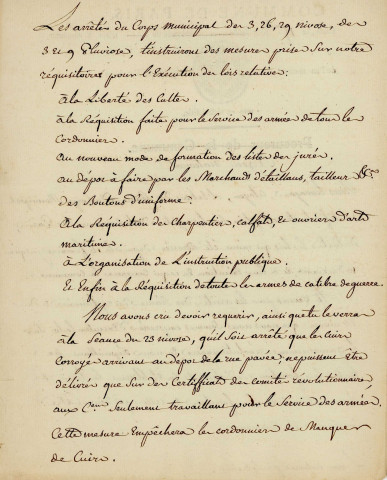 Les arrêtés du Corps Municipal des 3, 26, 29 nivose, des
3 et 9 Pluviose, t'instruirons des mesures prises Sur notre
réquisitoires pour l'Exécution des lois relatives:
à la Liberté des Cultes.
à la Réquisition faite pour le Service des armées de tous les
Cordonniers.
au nouveau mode de formation des listes des jurés.
au dépot à faire par les Marchands détaillans, tailleurs &c.
des Boutons d'uniforme:
à la Requisition des Charpentiers, calfats, et ouvriers d'arts
maritime.
à L'organisation de L'instruction publique.
Et Enfin à la Réquisition de toutes les armes de calibre de guerre.
Nous avons cru devoir requerir, ainsi que tu le verras
à la Seance du 23 nivose, qu'il Soit arrêté que les Cuirs
Corroyés arrivans au dépot de la rue pavée, ne puissent Etre
délivrés que Sur des Certifficats des Comités révolutionnaires,
aux C.ens Seulement travaillans pour le Service des armées.
Cette mesure Empêchera les cordonniers de Manquer
de Cuirs.